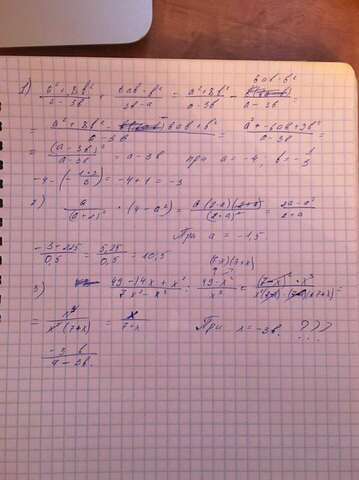 6ab-b²
1) (a²+8b²)/(a-3b) + (6ab-b²)/(3b-a) = (a²+8b²)/(a-3b) - /(a-3b) =
= (a²+8b² - 6ab+b²)/(a-3b) = (a²+-6ab+9b²)/(a-3b) =
= (a-3b)²/(a-3b) = a-3b при a=-4, b=-1/3
-4-(-(1·3)/3) = -4+1 = -3
2) a/(a+2)² · (4-a²) = a(2-a)(2+a)/(2+a)² = (2a-a²)/(2+a)
При a = -1,5
(-3-2,25)/0,5 = 5,25/0,5 = 10,5
(7-x)(7+x)
3) (49-14x+x²)/(7x²-x³) : (49-x²)/x³ = ((7-x)²·x³)/(x²(7-x)·(7-x)(7+x)) =
= x³/(x²(7+x)) = x/(7+x) При x=-3b. ???